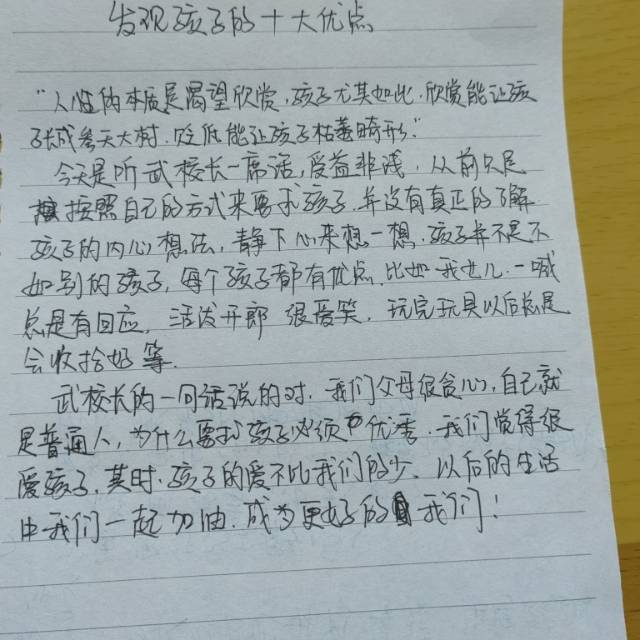 发现孩子的十大优点
"人性的本质是渴望欣赏,孩子尤其如此.欣赏能让孩
子长成参天大树.贬低能让孩子枯萎畸形."
今天是听武校长一席话,受益非浅,从前只是
按照自己的方式来要求孩子,并没有真正的了解
孩子的内心想法,静下心来想一想,孩子并不是不
如别的孩子,每个孩子都有优点.比如我女儿.一喊
总是有回应,活泼开郎 很爱笑.玩完玩具以后总是
会收拾好等.
武校长的一句话说的对.我们父母很贪心,自己就
是普通人,为什么要求孩子必须优秀.我们觉得很
爱孩子,其时.孩子的爱不比我们的少、以后的生活
中我们一起加油.成为更好的我们!